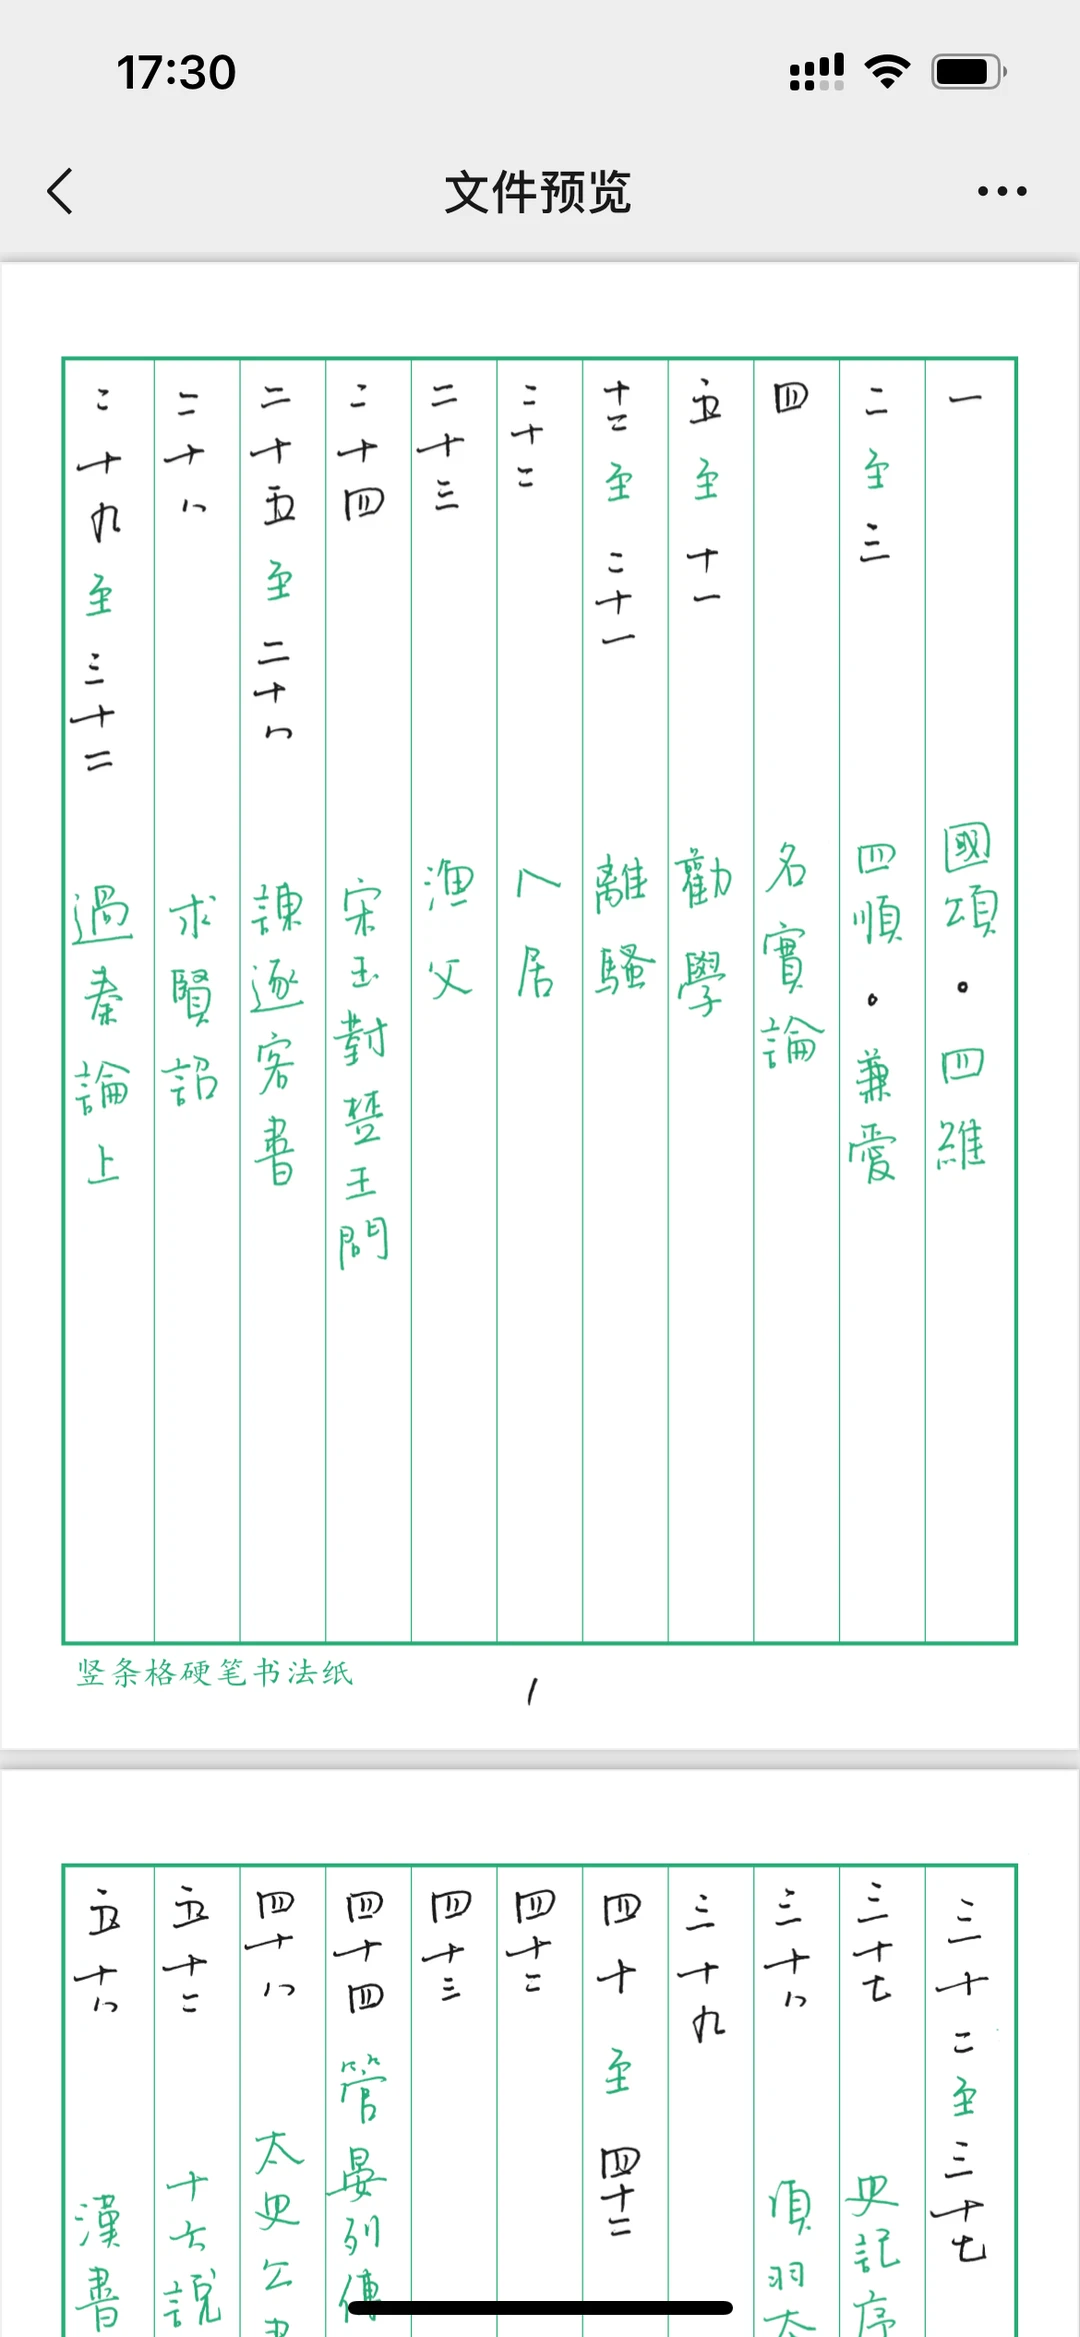 17:30
文件预览
一 國頌。四維
二至三 四順。兼愛
四 名實論
五至十一 勸學
十二至二十一 離騷
二十二 卜居
二十三 漁父
二十四 宋玉對楚王問
二十五至二十八 諫逐客書
二十八 求賢詔
二十九至三十二 過秦論上
竖条格硬笔书法纸
1
三十二至三十七
三十七 史記序
三十八 項羽本
三十九
四十至四十二
四十二
四十三
四十四 管晏列傳
四十八 太史公
五十二 十六說
五十八 漢書